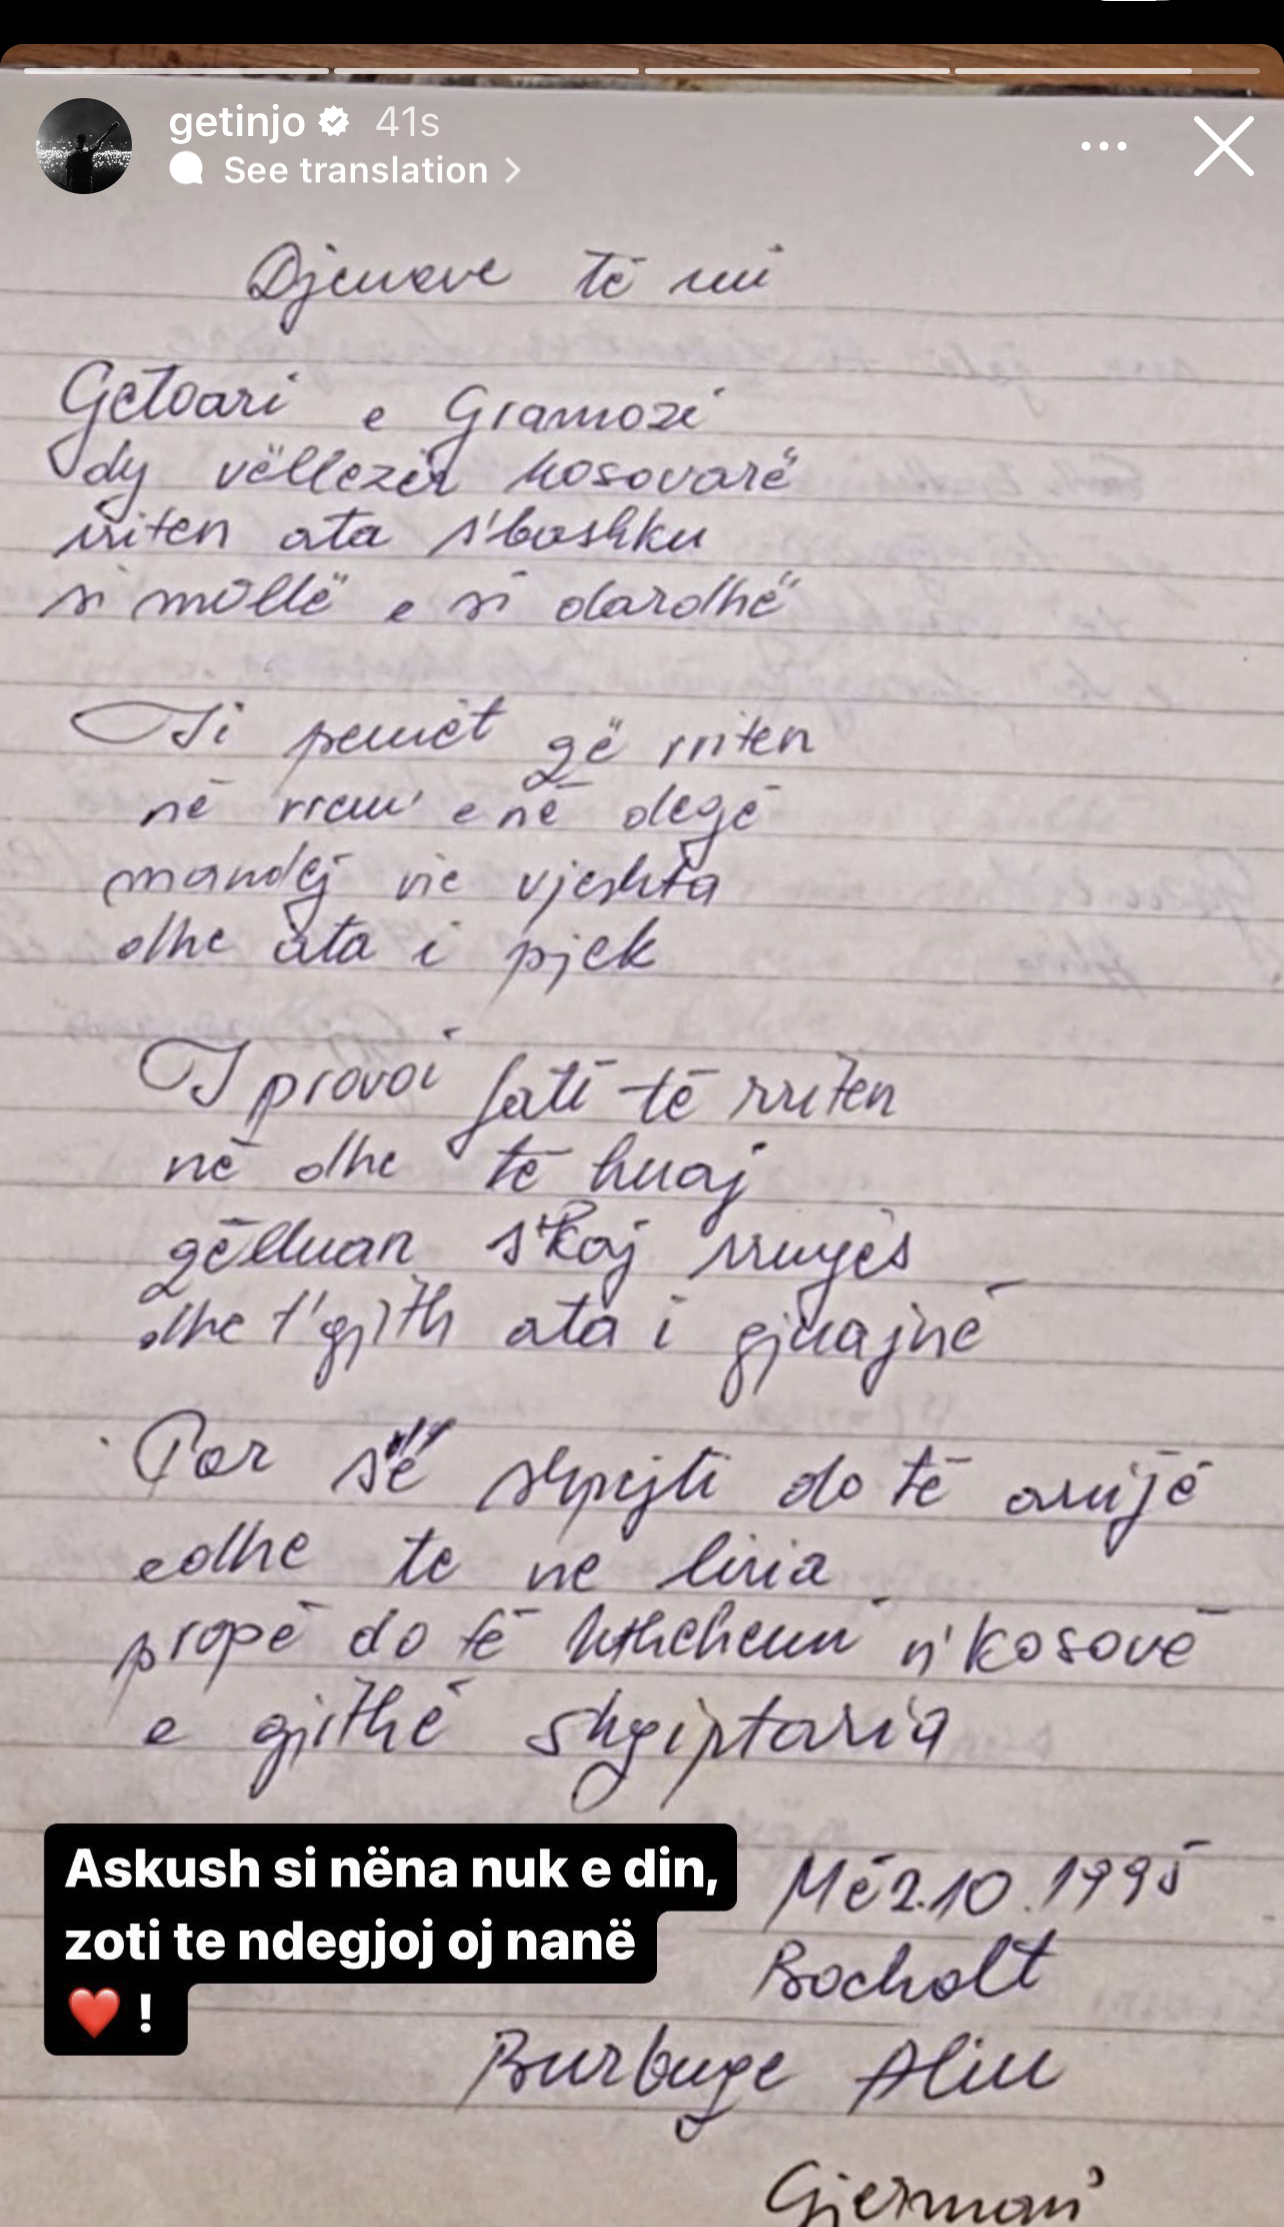 getinjo 41s
See translation
Djemve të mi
Getoari e Gramozi
dy vëllezër kosovarë
rriten ata s'bashku
si mollë e si dardhë
Si pemët që rriten
në rrem' e në degë
mandej vie vjeshta
dhe ata i pjek
I provoi fati të rriten
në dhe të huaj
qëlluan s'kaj rrugës
dhe t'gjith ata i gjuajnë
Por së shpejti do të arrijë
edhe te ne liria
propë do të kthehemi n'kosovë
e gjithë shqiptaria
Më 2.10.1995
Bocholt
Burbuqe Aliu
Gjermani
Askush si nëna nuk e din,
zoti te ndegjoj oj nanë
❤️ !